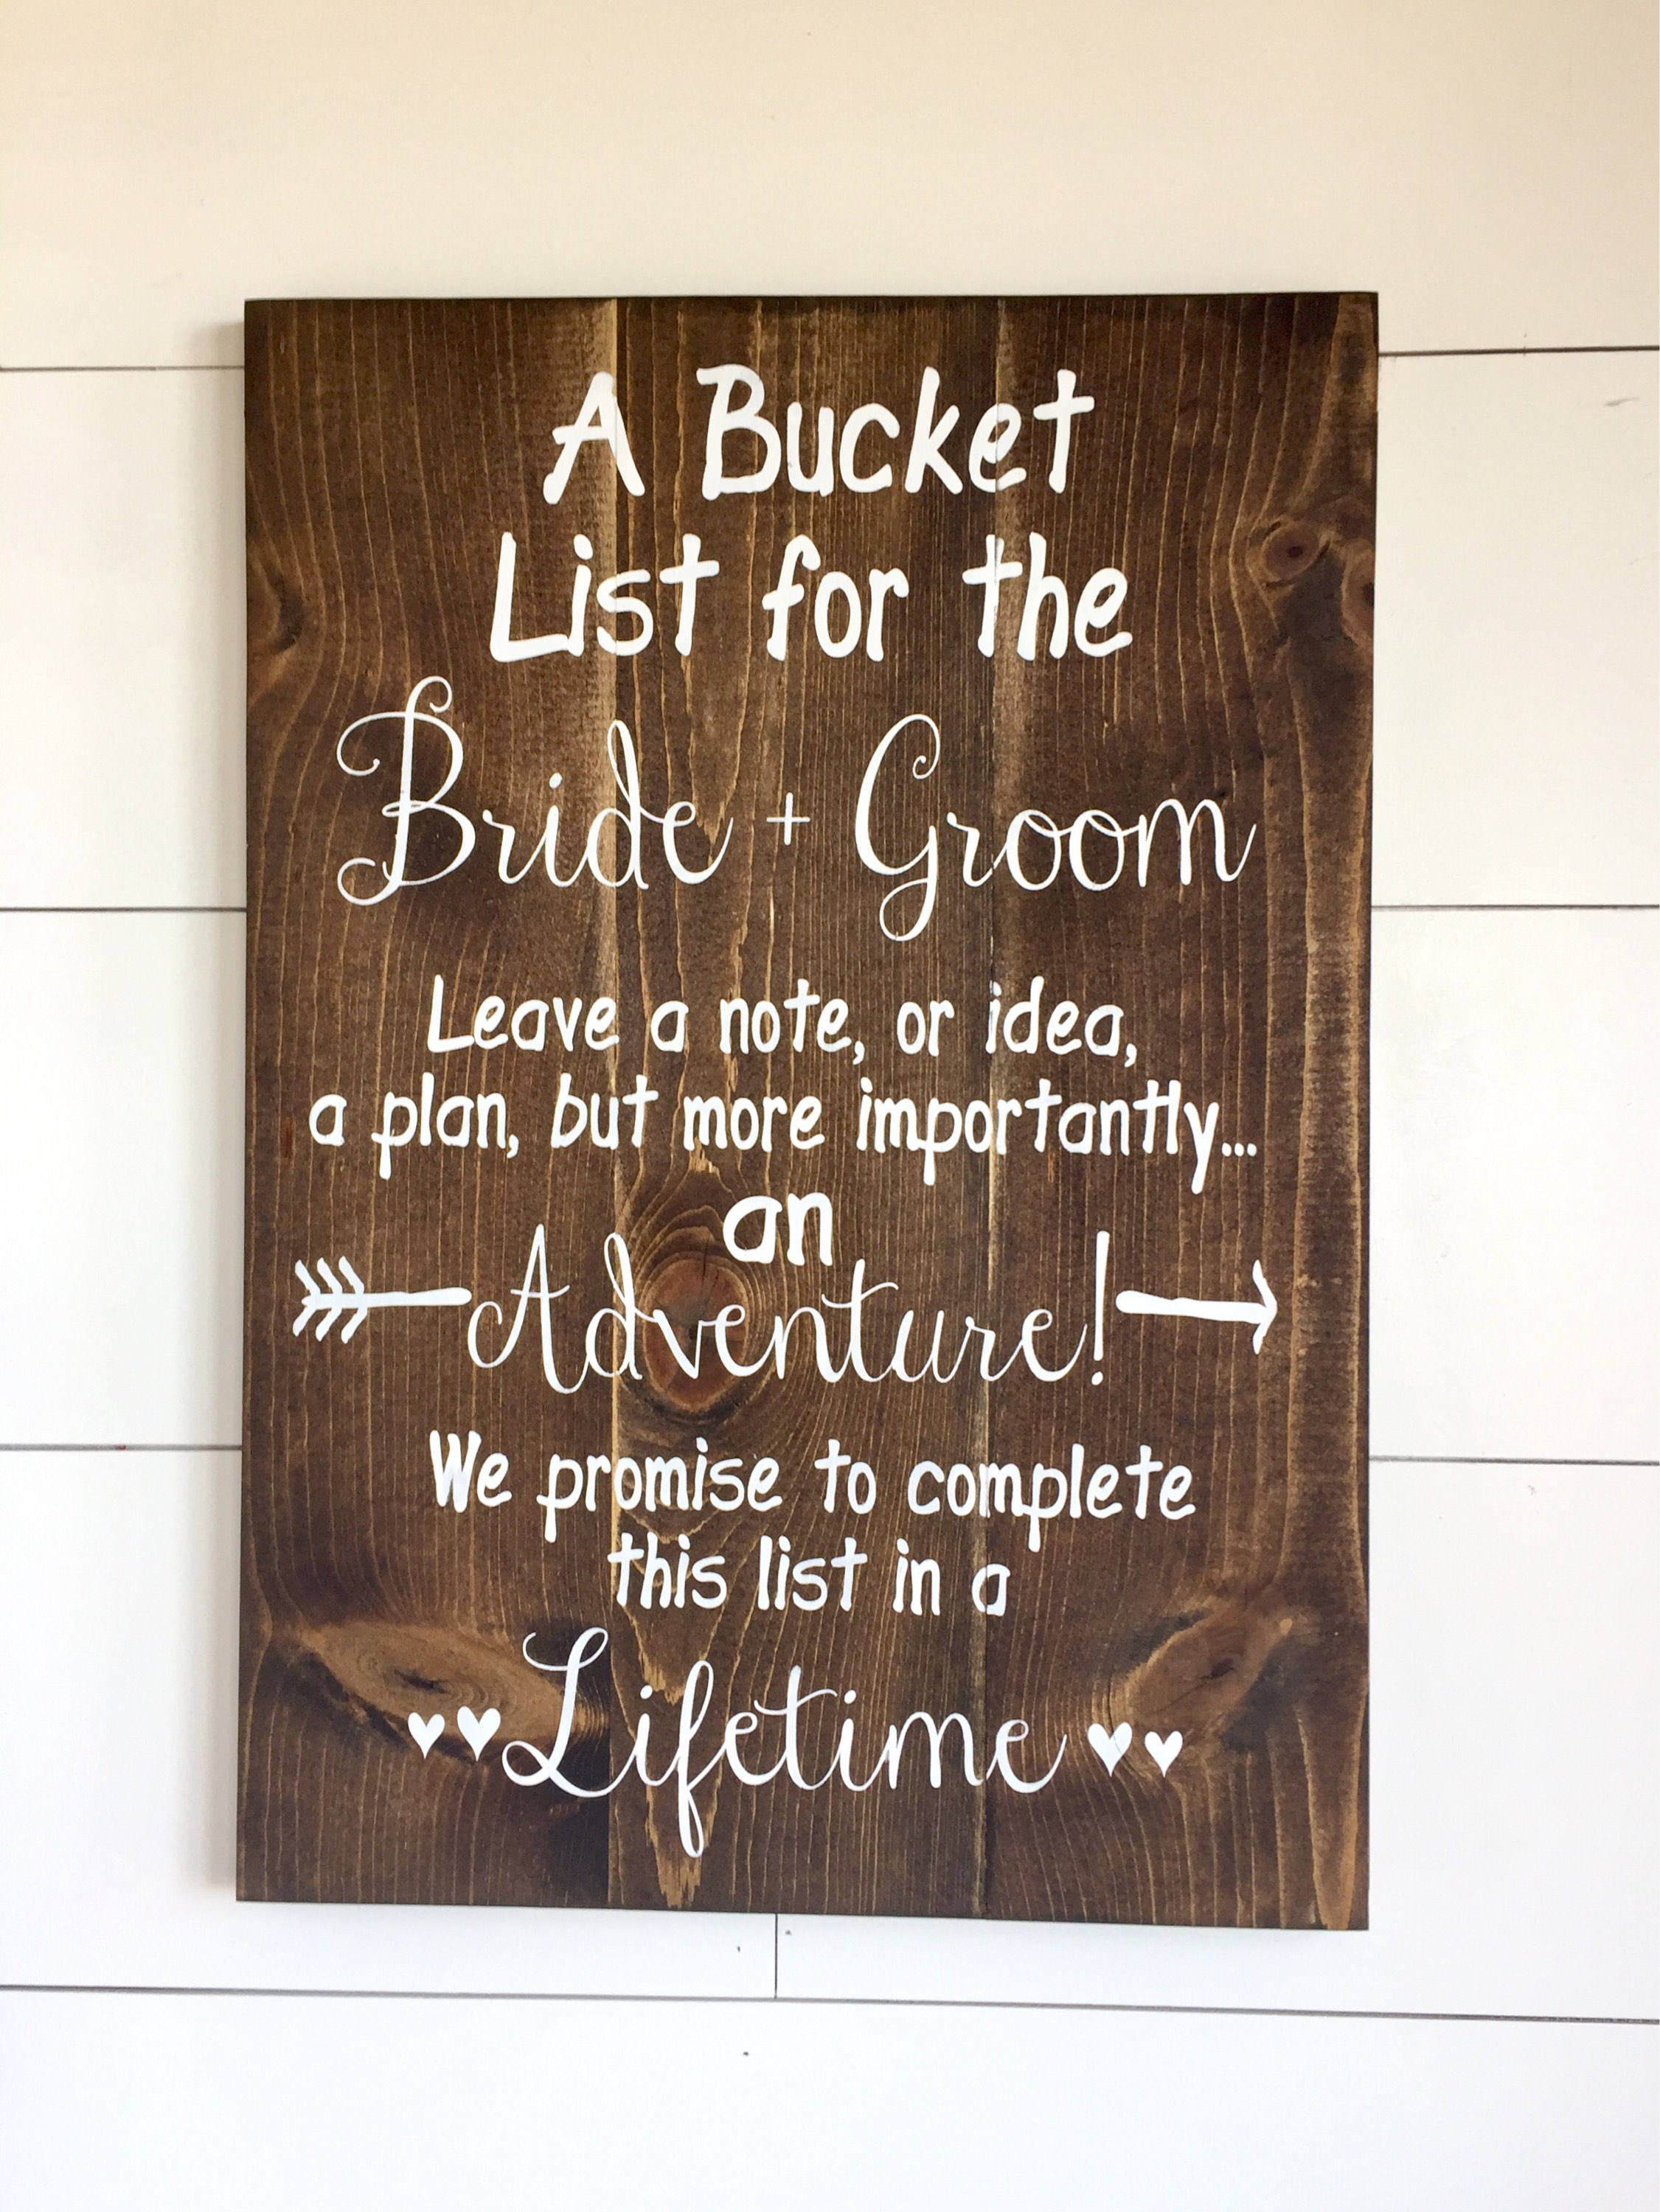 A Bucket
List for the
Bride + Groom
Leave a note, or idea,
a plan, but more importantly...
an
Adventure!
We promise to complete
this list in a
Lifetime